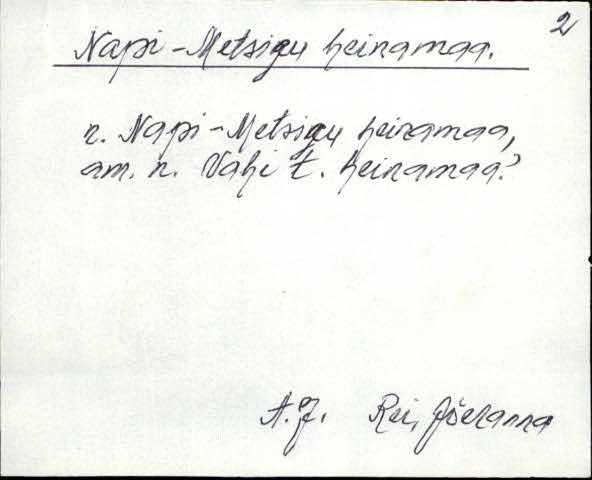 2
Napi-Metsigu heinamaa.
n. Napi-Metsigu heinamaa,
am. n. Vahi t. heinamaa?
A.J. Rei, Jõeranna